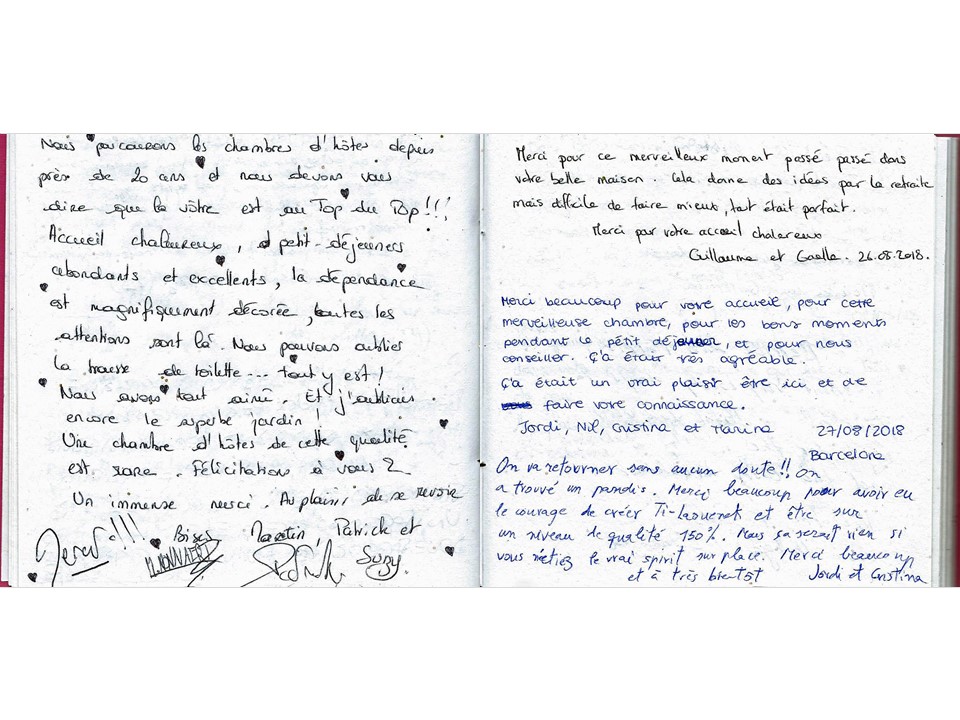 Nous parcourons les chambres d'hôtes depuis
près de 20 ans et nous devons vous
dire que la vôtre est au Top du Top!!!
Accueil chaleureux, petit-déjeuners
abondants et excellents, la dépendance
est magnifiquement décorée, toutes les
attentions sont là. Nous pouvons oublier
la trousse de toilette... tout y est!
Nous avons tout aimé. Et j'oubliais
encore le superbe jardin!
Une chambre d'hôtes de cette qualité
est rare. Félicitations à vous 2
Un immense merci. Au plaisir de se revoir
Merci!!! Bises Patrick et
Suzy.
Merci pour ce merveilleux moment passé passé dans
votre belle maison. Cela donne des idées par la retraite
mais difficile de faire mieux, tout était parfait.
Merci par votre accueil chaleureux
Guillaume et Gaelle. 26.08.2018.
Merci beaucoup pour votre accueil, pour cette
merveilleuse chambre, pour les bons moments
pendant le pétit déjeuner, et pour nous
conseiller. Ç'a était très agréable.
Ç'a était un vrai plaisir être ici et de
faire votre connaissance.
Jordi, Nil, Cristina et Marina 27/08/2018
Barcelona
On va retourner sans aucun doute!! On
a trouvé un paradis. Merci beaucoup pour avoir eu
le courage de créer Ti-Laouenek et être sur
un niveau de qualité 150%. Mais sa serait rien si
vous n'étiez le vrai spirit sur place. Merci beaucoup
et à très bientôt Jordi et Cristina